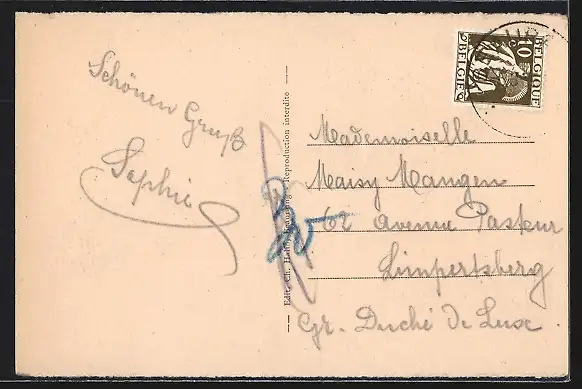 Schönen Gruß
Sophie
BELGIE
10 c
BELGIQUE
Mademoiselle
Maisy Mangen
62 avenue Pasteur
Limpertsberg
Gr. Duché de Lux.
Reproduction interdite
Edit. Ch.